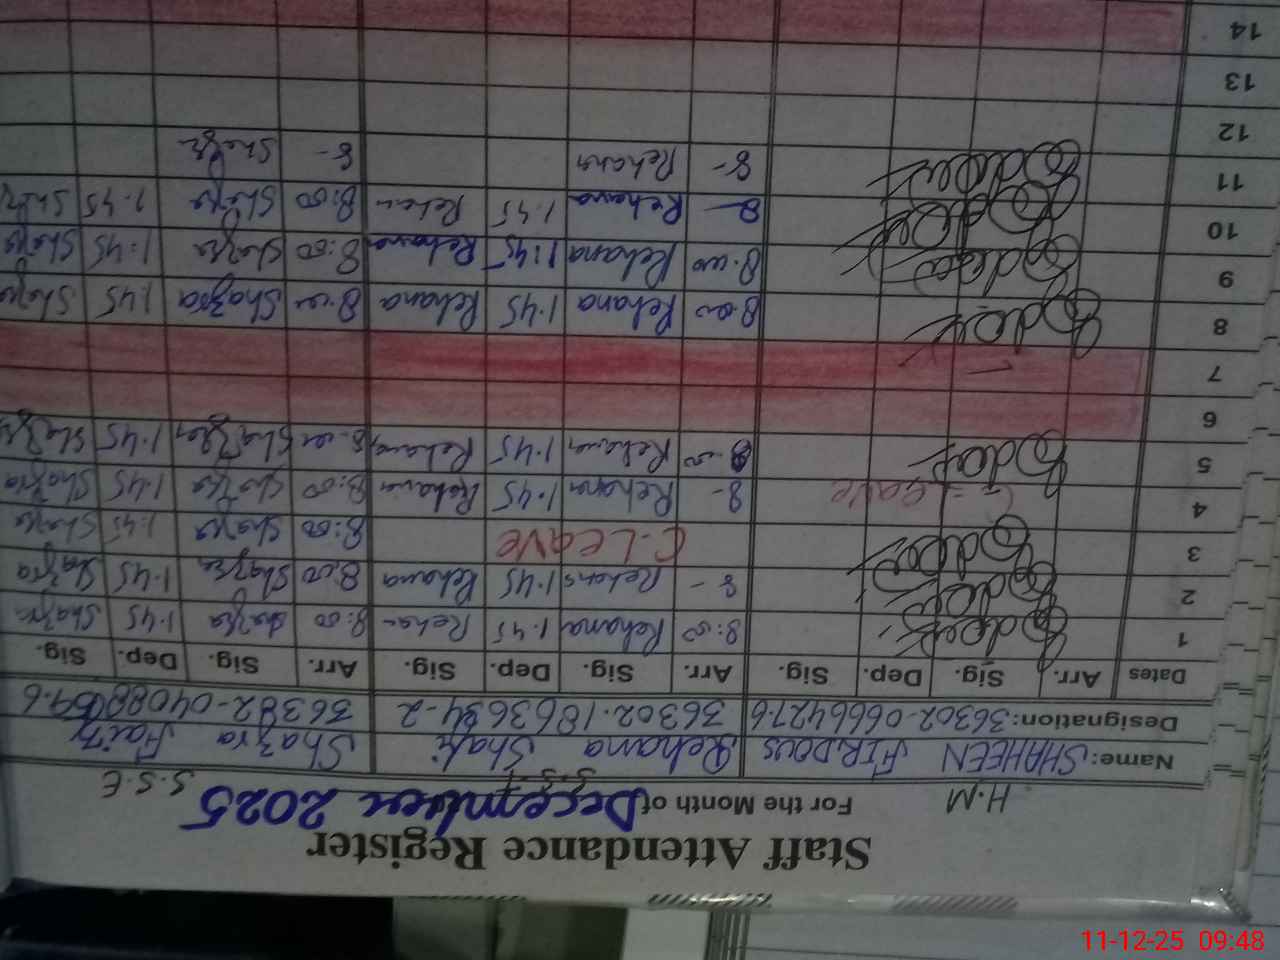 Staff Attendance Register
H.M For the Month of December 2025
S.S.T S.S.E
Name: SHAHEEN FIRDOUS Rehana Shafi Shazra Haiz
Designation: 36302-0666427-6 36302-1863684-2 36382-0408809-6
Dates Arr. Sig. Dep. Sig. Arr. Sig. Dep. Sig. Arr. Sig. Dep. Sig.
1 8:00 Rehana 1.45 Rehan 8:00 Shazra 1.45 Shazra
2 8 - Rehana 1.45 Rehana 8:00 Shazra 1.45 Shazra
3 C.Leave 8:00 Shazra 1.45 Shazra
4 C-Leave 8- Rehana 1.45 Rehana 8:00 Shazra 1.45 Shazra
5 Rehana 1.45 Rehana Shazra 1.45 Shazra
6
7
8 8:00 Rehana 1.45 Rehana 8:00 Shazra 1.45 Shazra
9 8:00 Rehana 1:45 Rehana 8:00 Shazra 1:45 Shazra
10 8- Rehana 1.45 Rehan 8:00 Shazra 1.45 Shazra
11 8- Rehana 8- Shazra
12
13
14
11-12-25 09:48